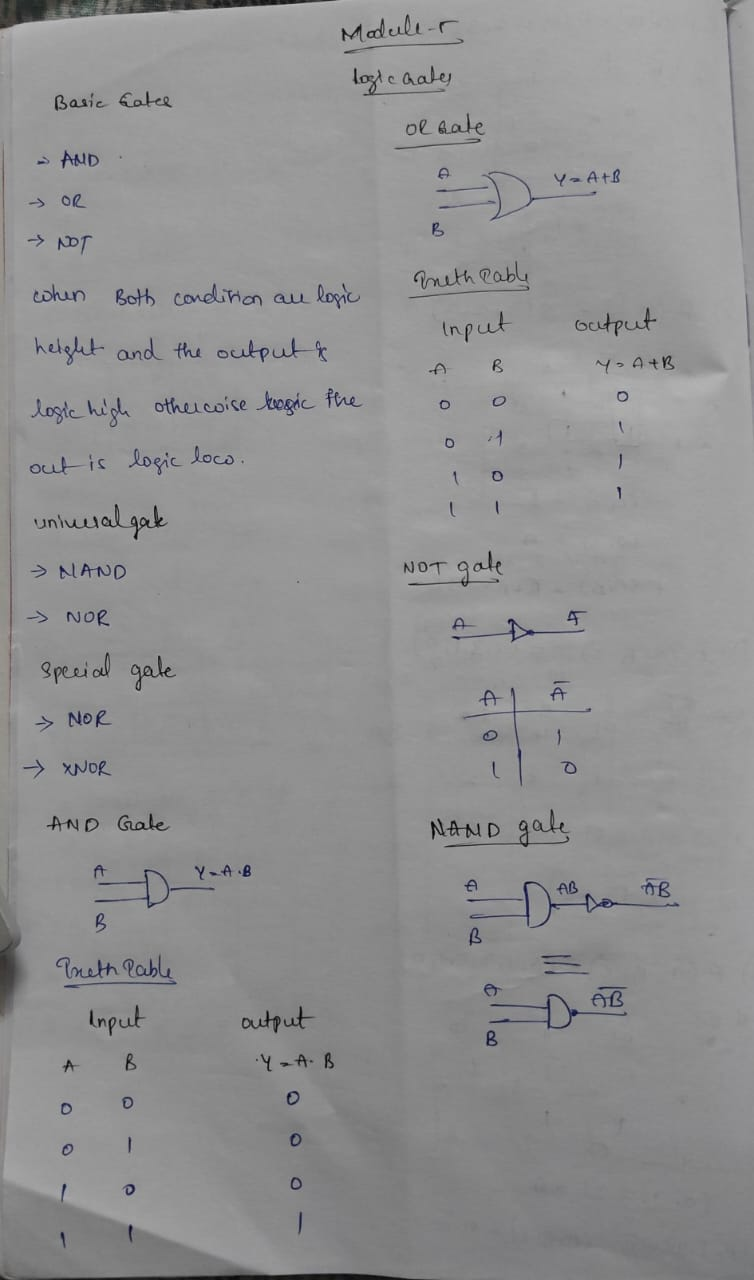 Module-5
Logic Gates
Basic Gates
→ AND
→ OR
→ NOT
when Both condition are logic
height and the output is
logic high otherwise the
out is logic low.
universal gate
→ NAND
→ NOR
Special gate
→ NOR
→ XNOR
AND Gate
A
Y=A.B
B
Truth Table
Input output
A B Y=A.B
0 0 0
0 1 0
1 0 0
1 1 1
OR Gate
A
Y=A+B
B
Truth Table
Input output
A B Y=A+B
0 0 0
0 1 1
1 0 1
1 1 1
NOT gate
A A̅
A A̅
0 1
1 0
NAND gate
A AB A̅B̅
B
≡
A A̅B̅
B